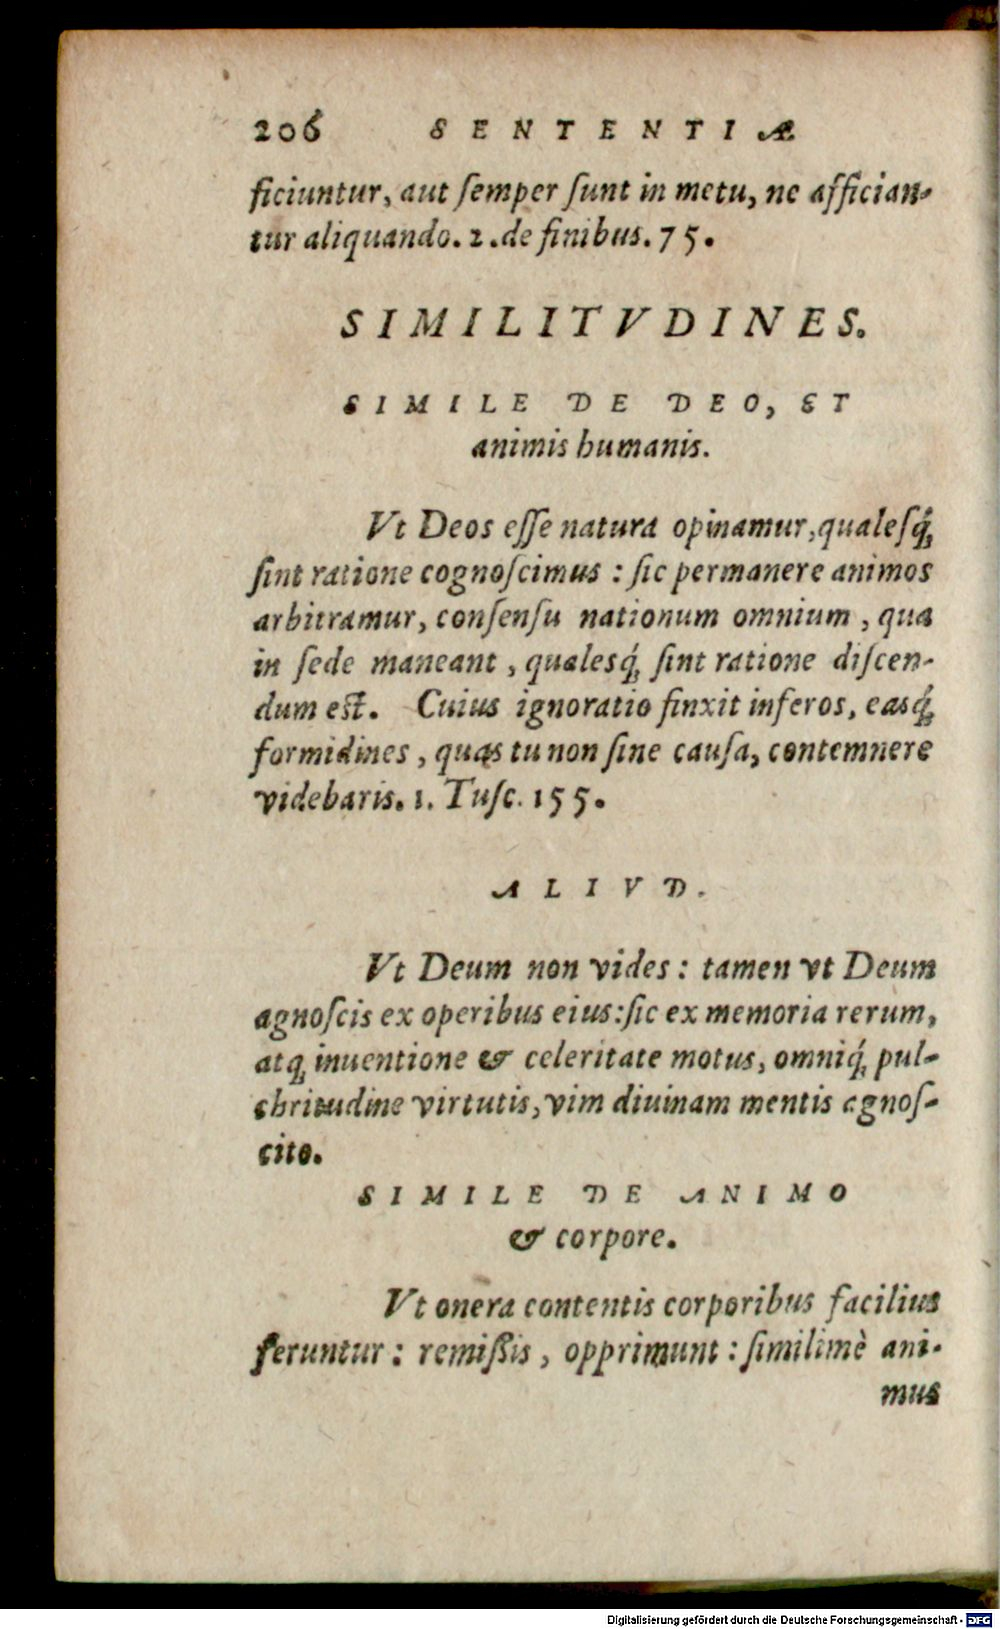 206 SENTENTIÆ
ficiuntur, aut ſemper ſunt in metu, ne affician-
tur aliquando. 2. de finibus. 75.
SIMILITVDINES.
SIMILE DE DEO, ET
animis humanis.
Vt Deos eſſe natura opinamur, qualeſq́;
ſint ratione cognoſcimus : ſic permanere animos
arbitramur, conſenſu nationum omnium, qua
in ſede maneant, qualesq́; ſint ratione diſcen-
dum eſt. Cuius ignoratio finxit inferos, easq́;
formidines, quas tu non ſine cauſa, contemnere
videbaris. 1. Tuſc. 155.
ALIVD.
Vt Deum non vides : tamen vt Deum
agnoſcis ex operibus eius: ſic ex memoria rerum,
atq; inuentione & celeritate motus, omniq́; pul-
chritudine virtutis, vim diuinam mentis agnoſ-
cito.
SIMILE DE ANIMO
& corpore.
Vt onera contentis corporibus facilius
feruntur : remißis, opprimunt : ſimilimè ani-
mus
Digitalisierung gefördert durch die Deutsche Forschungsgemeinschaft - DFG